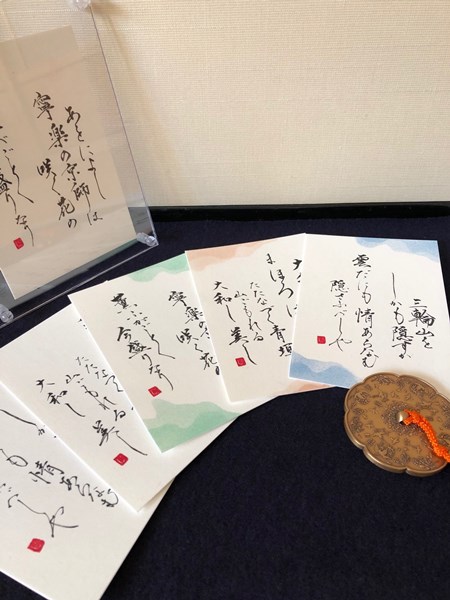 あをによし
寧楽の京師は
咲く花の
ごとく
盛りなり
三輪山を
しかも隠すか
雲だにも 情あらなむ
隠さふべしや
まほろば
たたなづく 青垣
山ごもれる
大和し 美し
寧楽の
咲く花の
薫ふがごとく
今盛りなり
たたなづ
山ごもれる
大和し 美し
も 情あらなむ
べしや